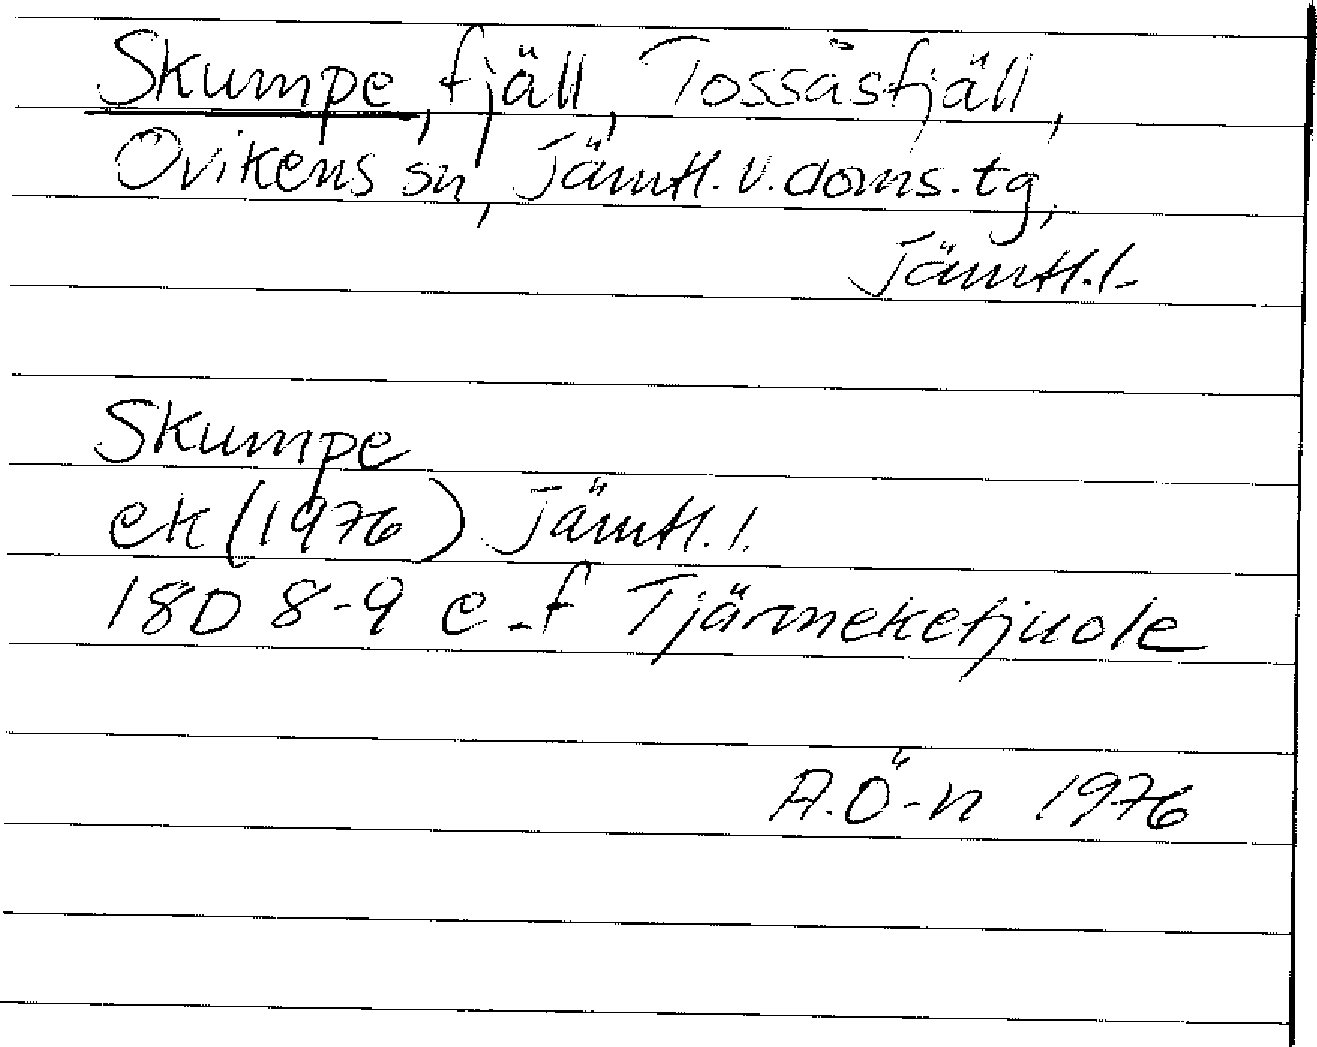 Skumpe, fjäll, Tossåsfjäll,
Ovikens sn, Jämtl. v. doms. tg,
Jämtl. l.
Skumpe
ek (1976) Jämtl. l.
18D 8-9 e-f Tjärmeketjuole
A.Ö-n 1976